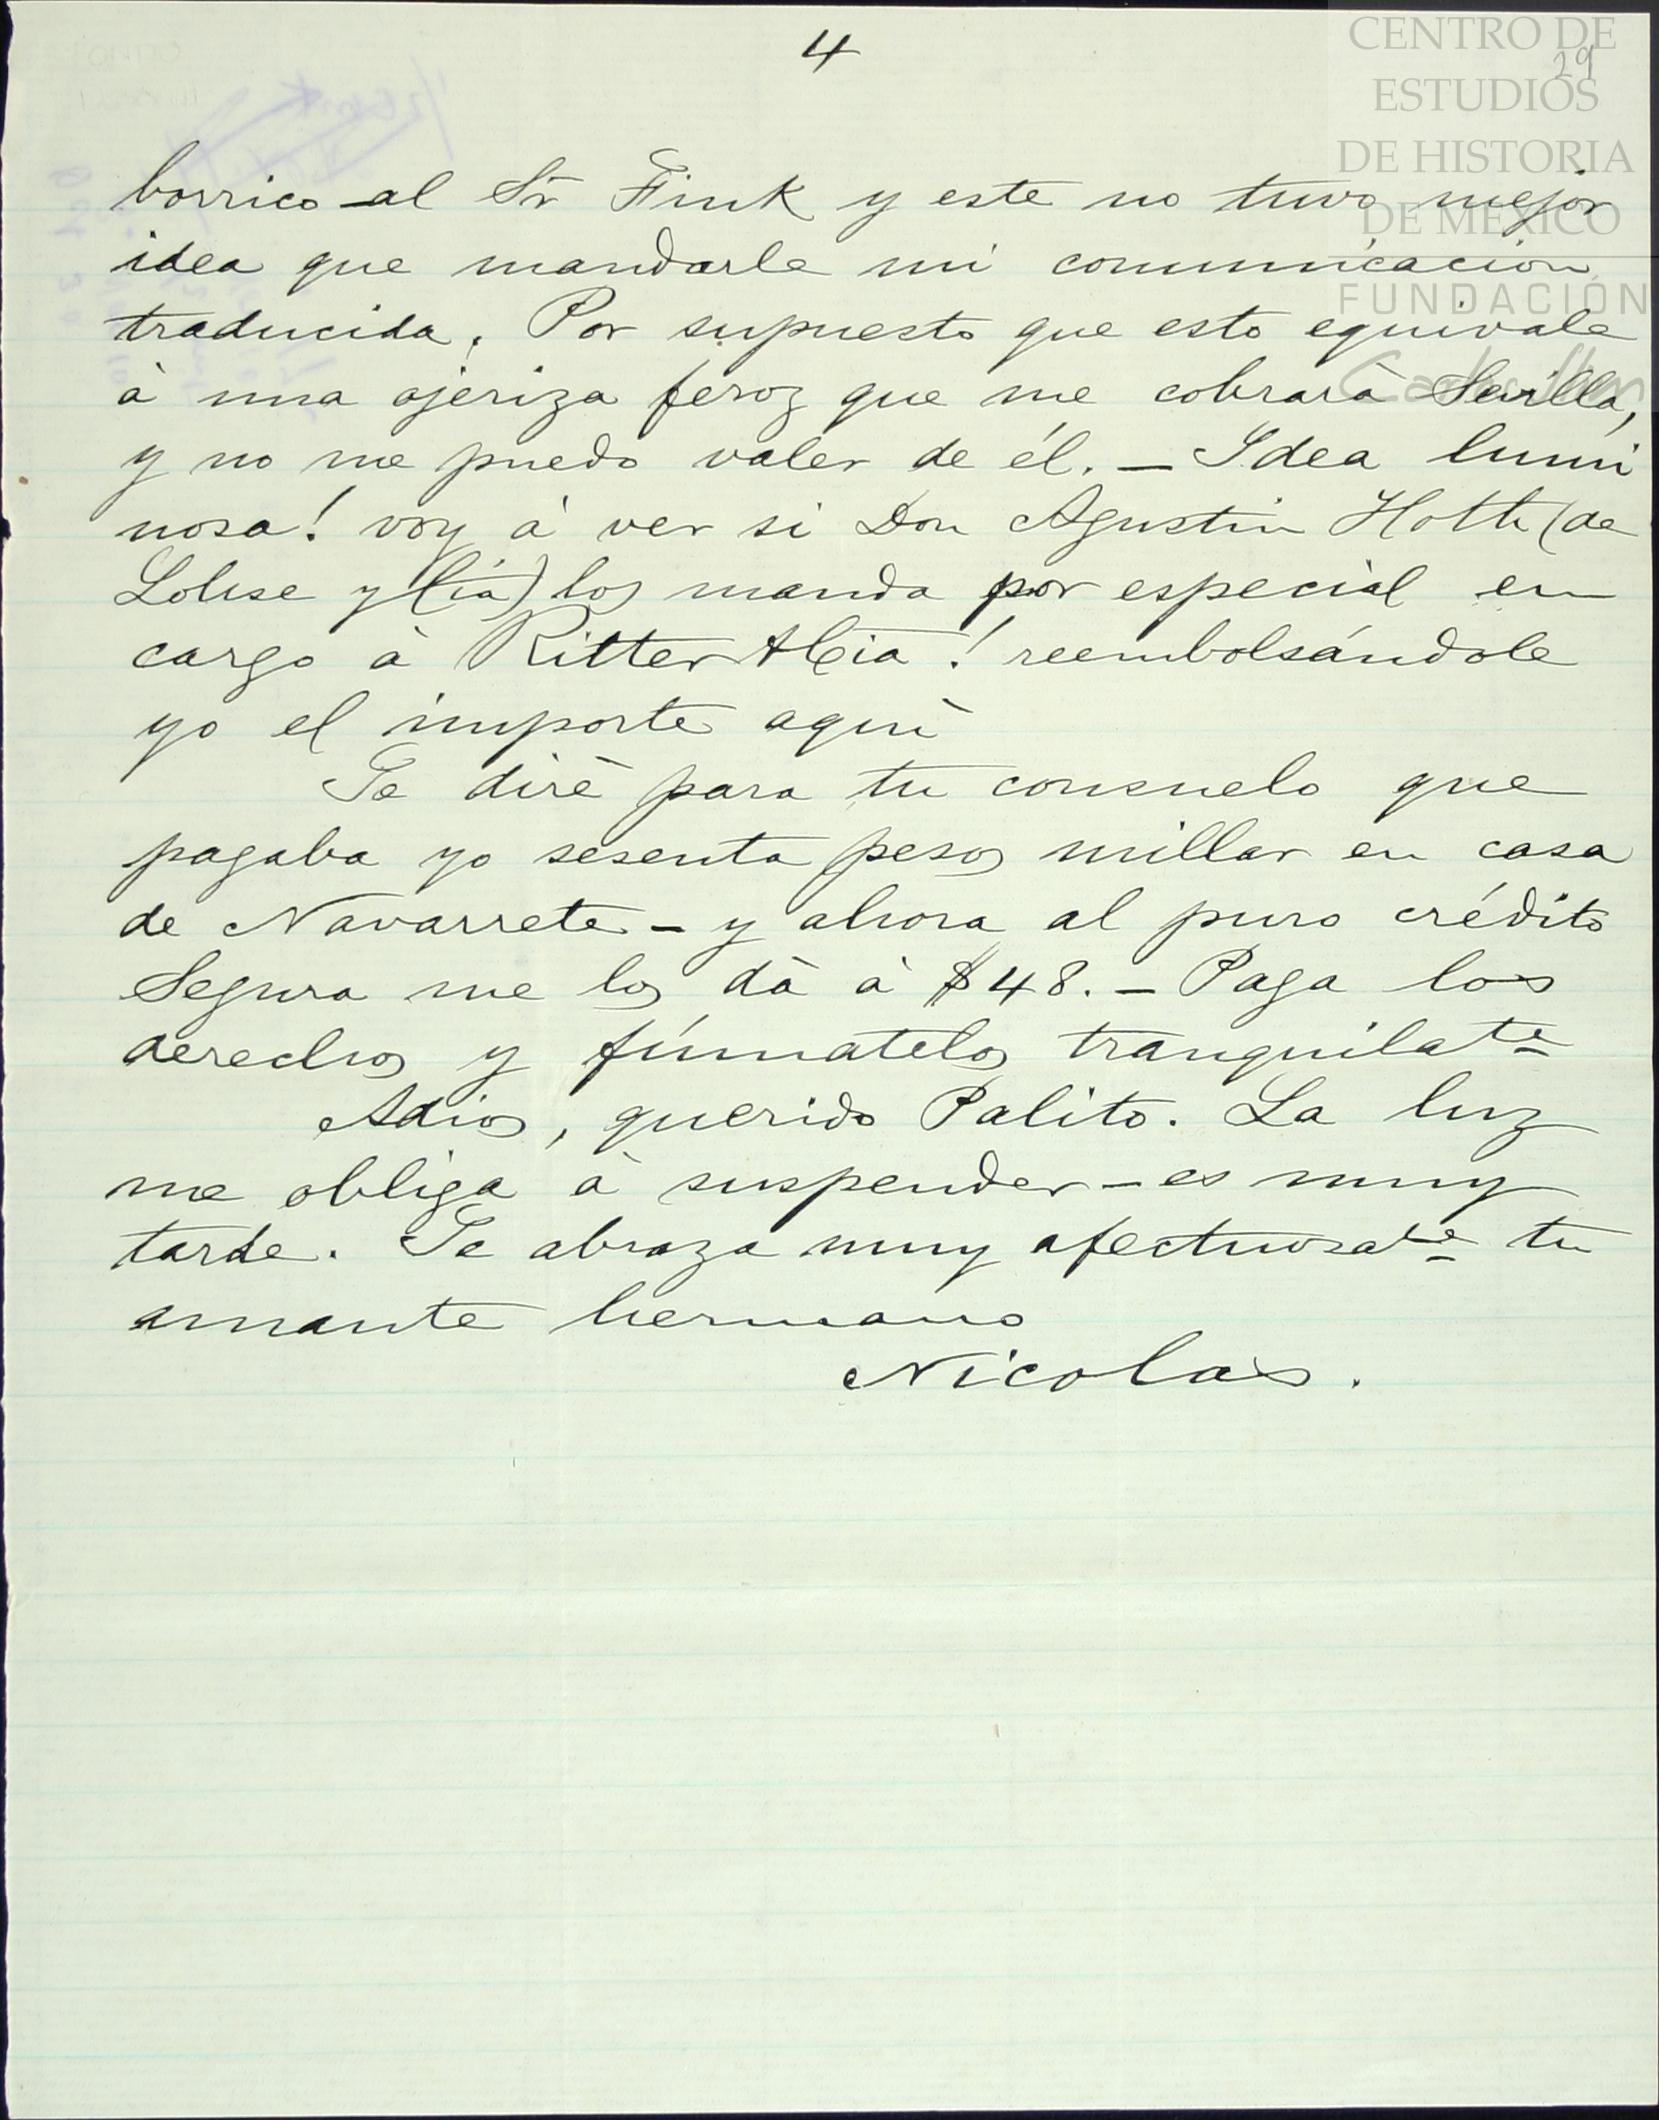 4
29
CENTRO DE
ESTUDIOS
DE HISTORIA
DE MÉXICO
FUNDACIÓN
Carlos Slim
borrico al Sr Fink y este no tuvo mejor
idea que mandarle mi comunicacion
traducida. Por supuesto que esto equivale
à una ojeriza feroz que me cobrarà Sevilla,
y no me puedo valer de él. — Idea lumi
nosa! voy à ver si Don Agustin Hoth (de
Lohse y Cia) los manda por especial en
cargo à Ritter & Cia! reembolsándole
yo el importe aqui
Te diré para tu consuelo que
pagaba yo sesenta pesos millar en casa
de Navarrete - y ahora al puro crédito
Segura me los dà à $48. — Paga los
derechos y fúmatelos tranquilate
Adios, querido Palito. La luz
me obliga à suspender - es muy
tarde. Te abraza muy afectuosate tu
amante hermano
Nicolas.